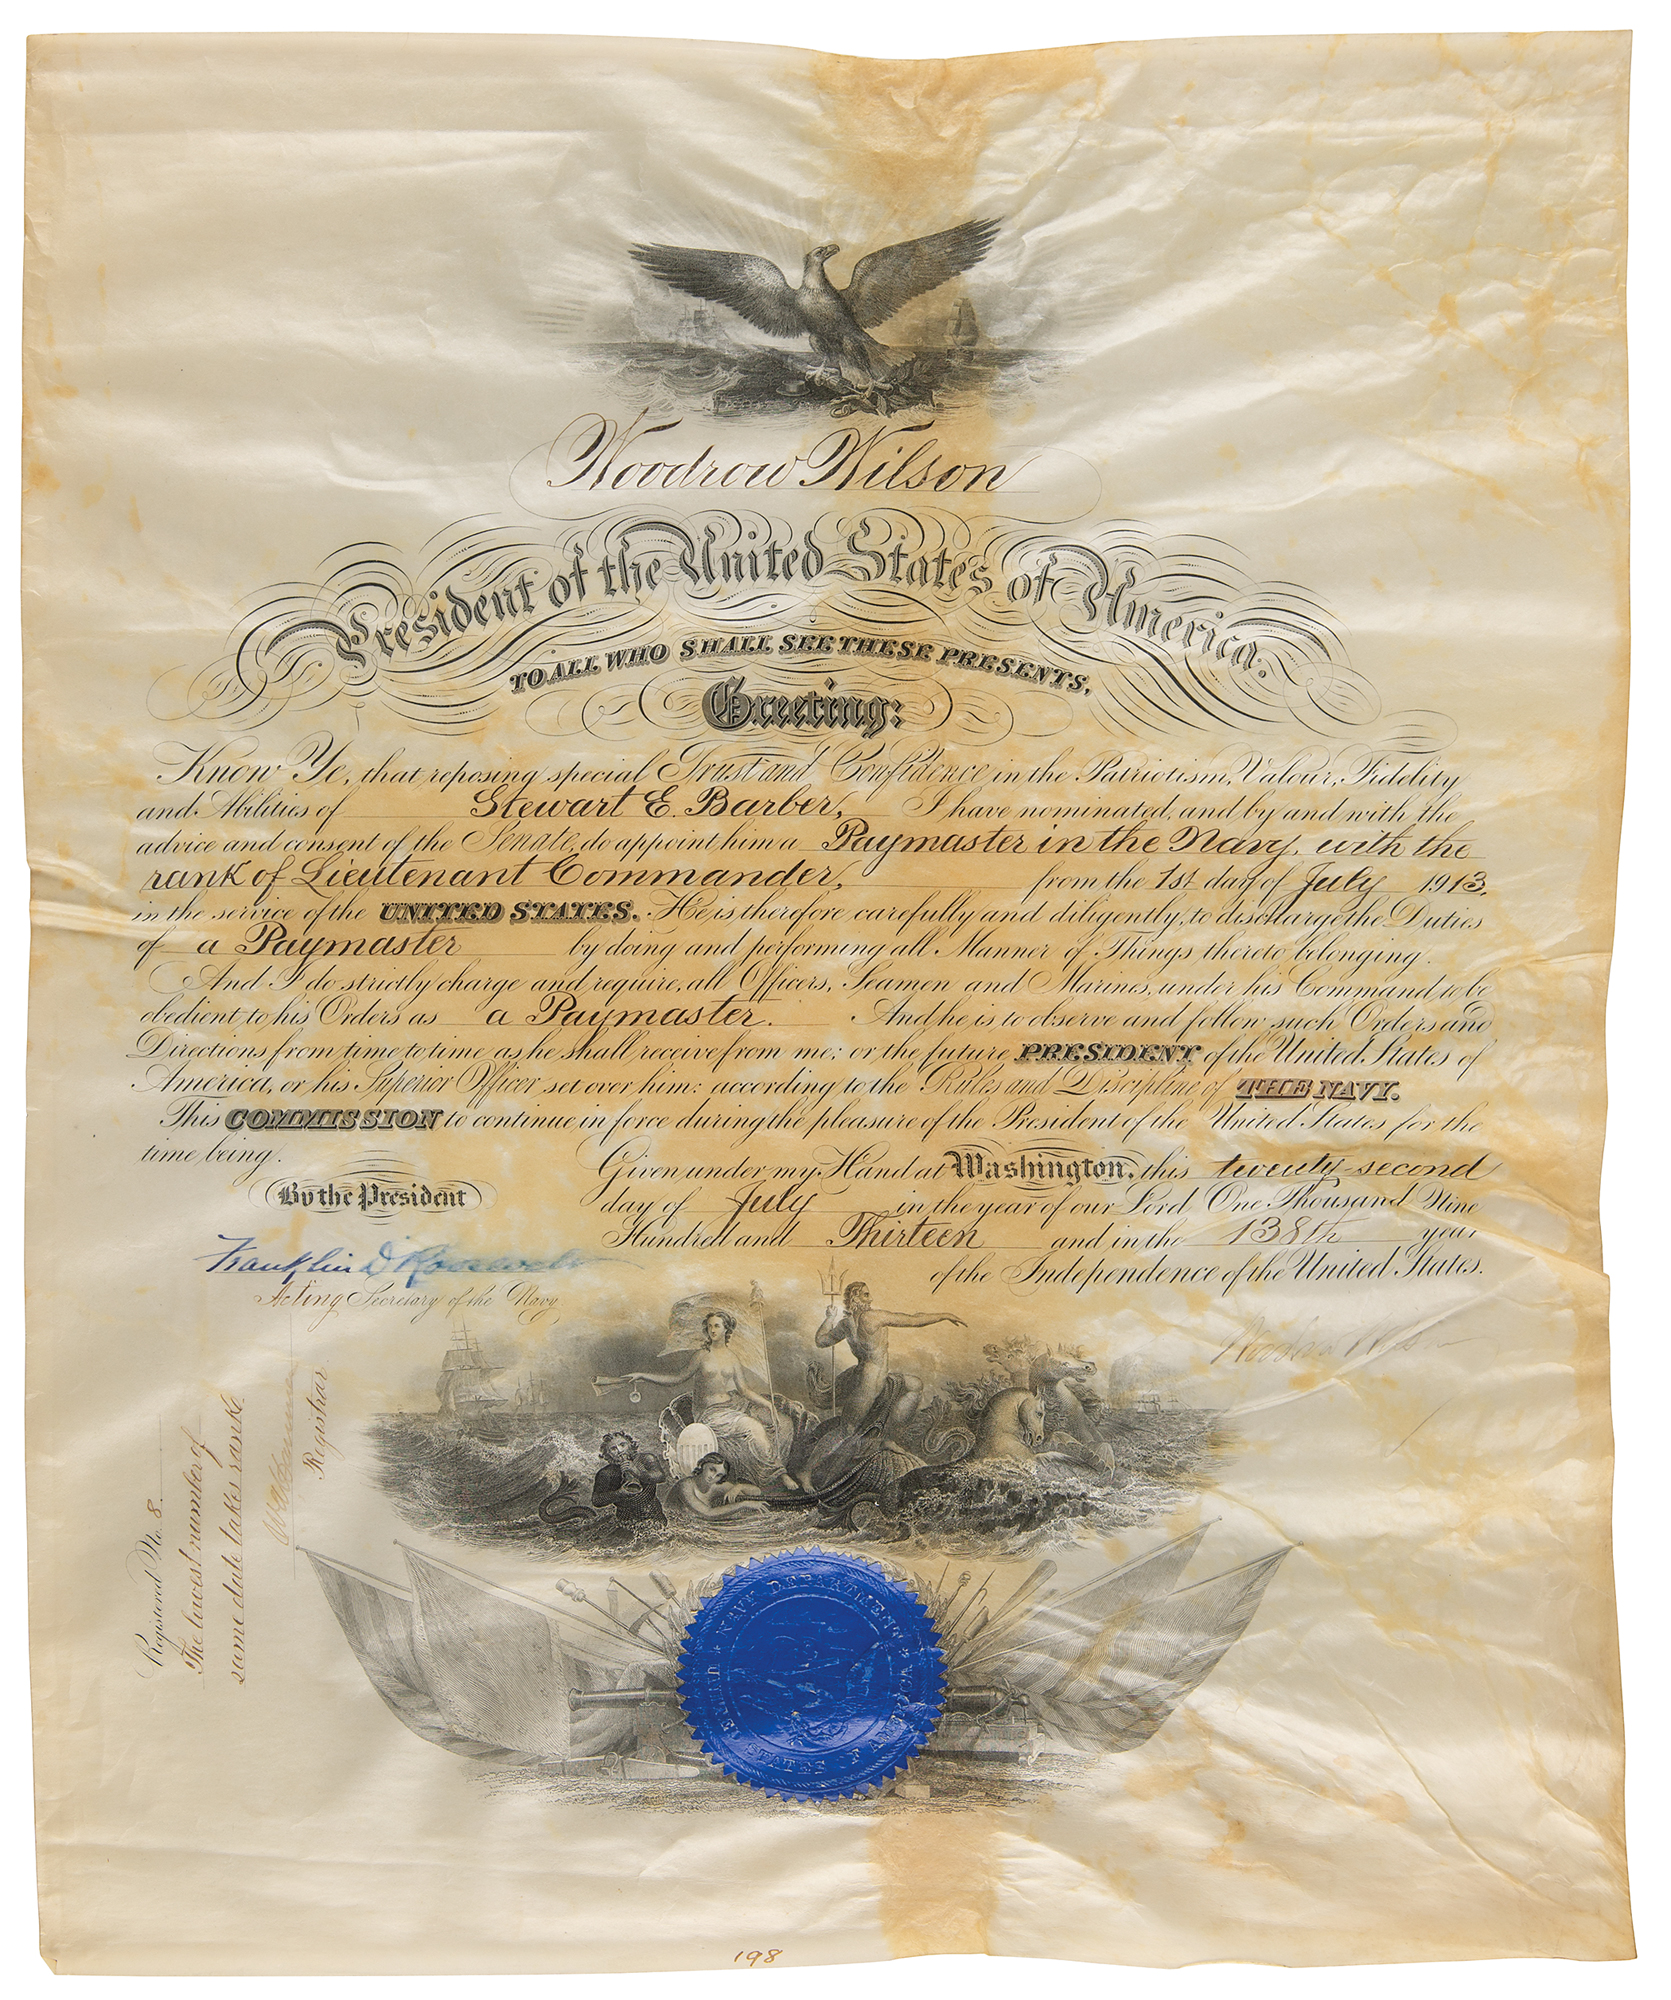 Woodrow Wilson
President of the United States of America.
TO ALL WHO SHALL SEE THESE PRESENTS,
Greeting:
Know Ye, that reposing special Trust and Confidence in the Patriotism, Valour, Fidelity
and Abilities of Stewart E. Barber, I have nominated, and by and with the
advice and consent of the Senate, do appoint him a Paymaster in the Navy, with the
rank of Lieutenant Commander, from the 1st day of July 1913,
in the service of the UNITED STATES. He is therefore carefully and diligently, to discharge the Duties
of a Paymaster by doing and performing all Manner of Things thereto belonging.
And I do strictly charge and require, all Officers, Seamen and Marines, under his Command to be
obedient to his Orders as a Paymaster. And he is to observe and follow such Orders and
Directions from time to time as he shall receive from me; or the future PRESIDENT of the United States of
America, or his Superior Officer set over him: according to the Rules and Discipline of THE NAVY.
This COMMISSION to continue in force during the pleasure of the President of the United States for the
time being.
Given under my Hand at Washington, this twenty-second
day of July in the year of our Lord One Thousand Nine
Hundred and Thirteen and in the 138th year
of the Independence of the United States.
By the President
Franklin D Roosevelt
Acting Secretary of the Navy.
Woodrow Wilson
Registered No. 8.
The lowest number of
same date takes rank
Registrar
NAVY DEPARTMENT
UNITED STATES OF AMERICA
198